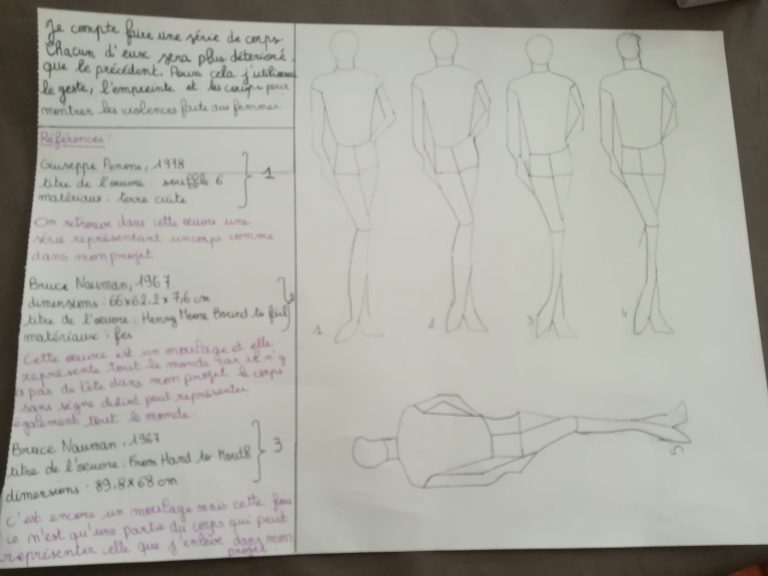 Je compte faire une série de corps.
Chacun d'eux sera plus déterioré
que le précédent. Pour cela j'utiliserai
le geste, l'empreinte et les coups pour
montrer les violences faite aux femmes
Références:
Giuseppe Penone, 1978
titre de l'oeuvre : souffle 6
matériaux : terre cuite
1
On retrouve dans cette oeuvre une
série représentant un corps comme
dans mon projet
Bruce Nauman, 1967
dimensions : 66x62,2x7,6 cm
titre de l'oeuvre : Henry Moore Bound to fail
matériaux : fer
2
Cette oeuvre est un moulage et elle
représente tout le monde car il n'y
a pas de tête dans mon projet le corps
sans signe distinct peut représenter
également tout le monde.
Bruce Nauman, 1967
titre de l'oeuvre : From Hand to Mouth
dimensions : 89,8x68 cm
3
C'est encore un moulage mais cette fois
ce n'est qu'une partie du corps qui peut
représenter celle que j'enlève dans mon
projet
1
2
3
4
5